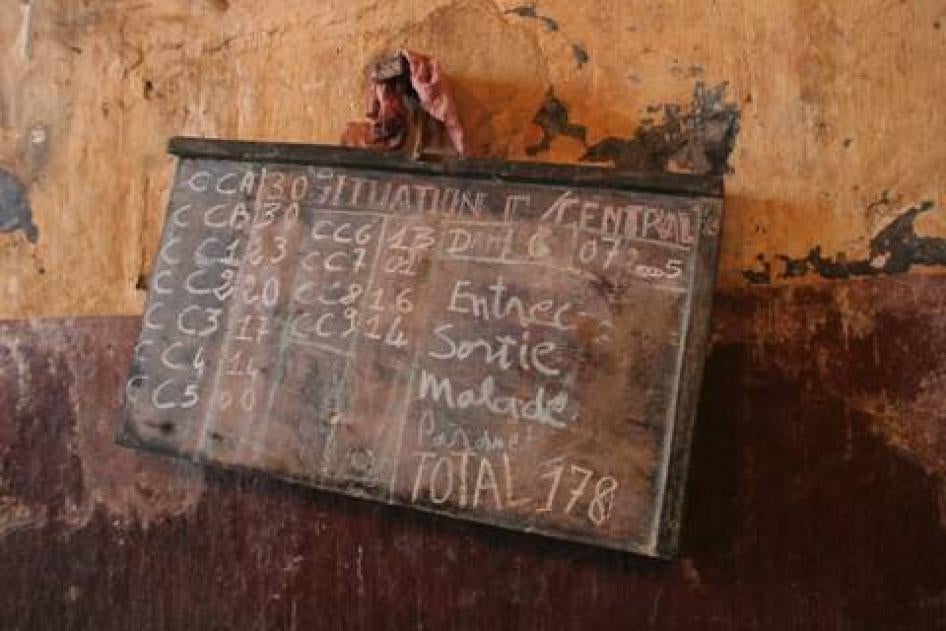 SITUATION CENTRAL
CCA 30
CCA 30
CC1 23
CC2 20
CC3 17
CC4 14
CC5 00
CC6 13
CC7 01
CC8 16
CC9 14
6 07
Entrée
Sortie
Malade
TOTAL 178